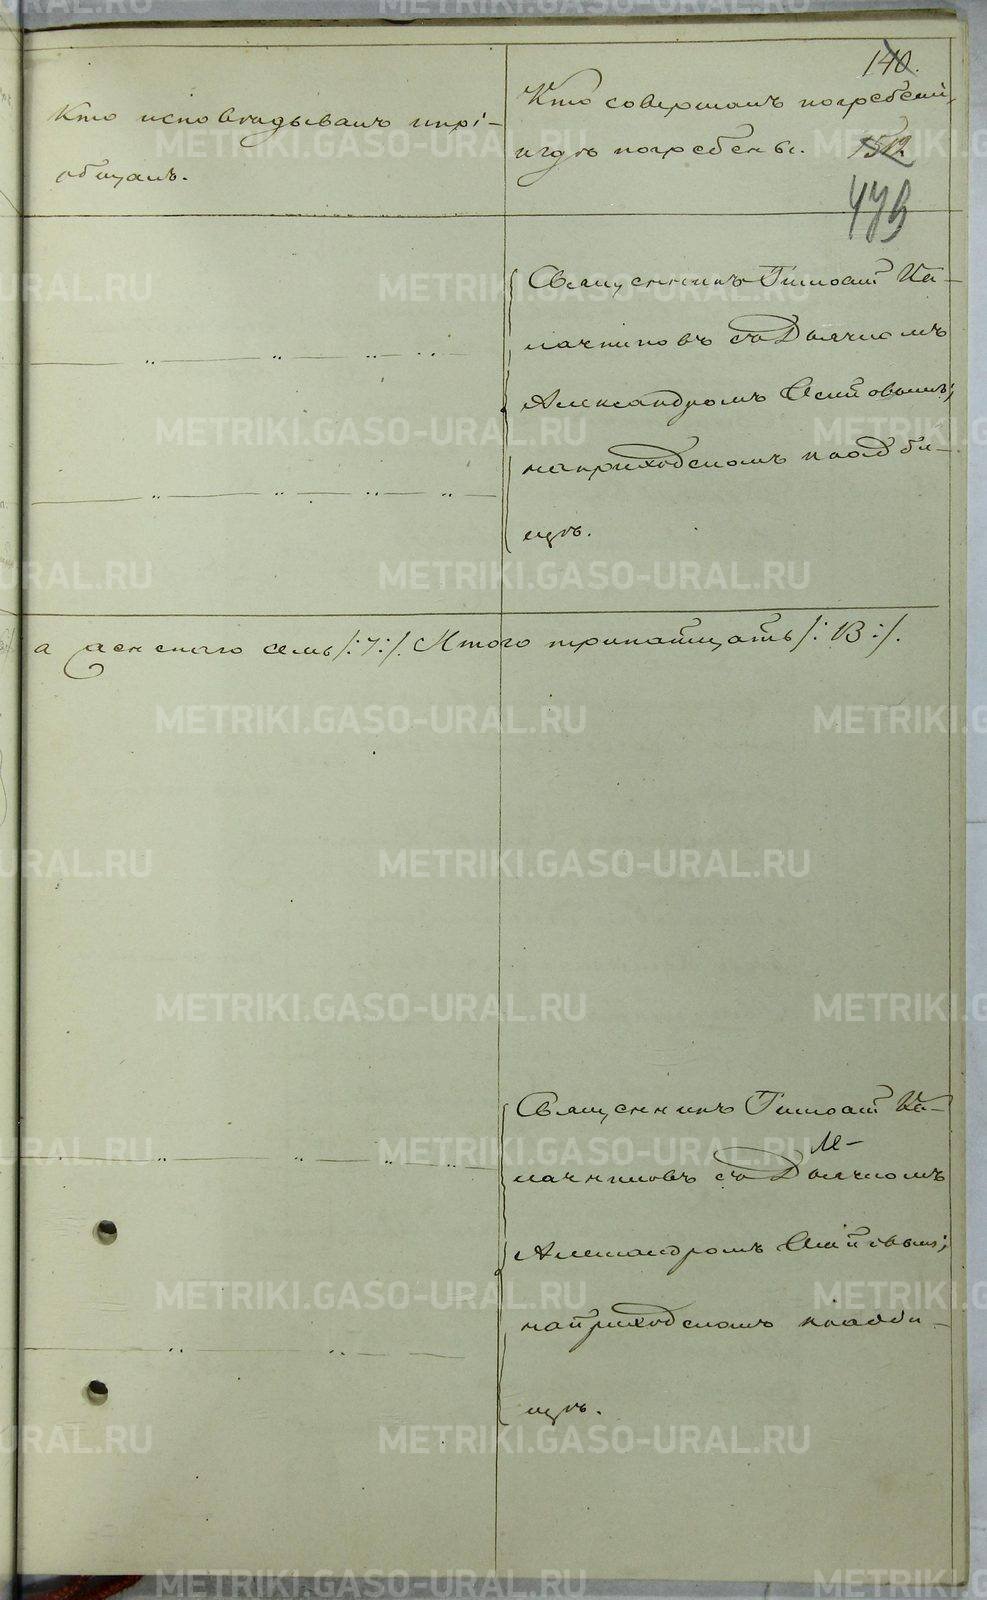 140.
Кто исповѣдывалъ и прі-
общалъ.
Кто совершалъ погребеніе
и гдѣ погребены.
152.
473
Священникъ Тимоѳей Ка-
лачниковъ съ Дьячкомъ
Александромъ Осиповымъ;
на приходскомъ кладби-
щѣ.
а женскаго семь /:7:/. Итого тринатцать /: 13 :/.
Священникъ Тимоѳей Ка-
лачниковъ съ Дьячкомъ
Александромъ Осиповымъ;
на приходскомъ кладби-
щѣ.
METRIKI.GASO-URAL.RU